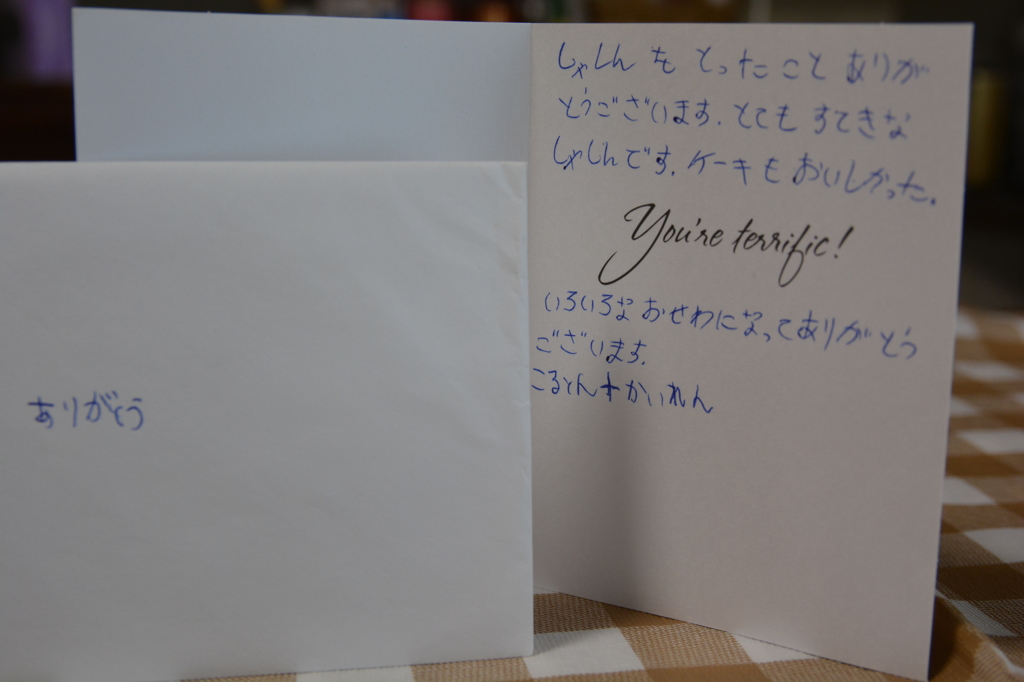 しゃしん を とった こと ありが
とうございます. とても すてきな
しゃしんです. ケーキも おいしかった.
You're terrific!
いろいろな おせわに なって ありがとう
ございます.
こるとん + かいれん
ありがとう